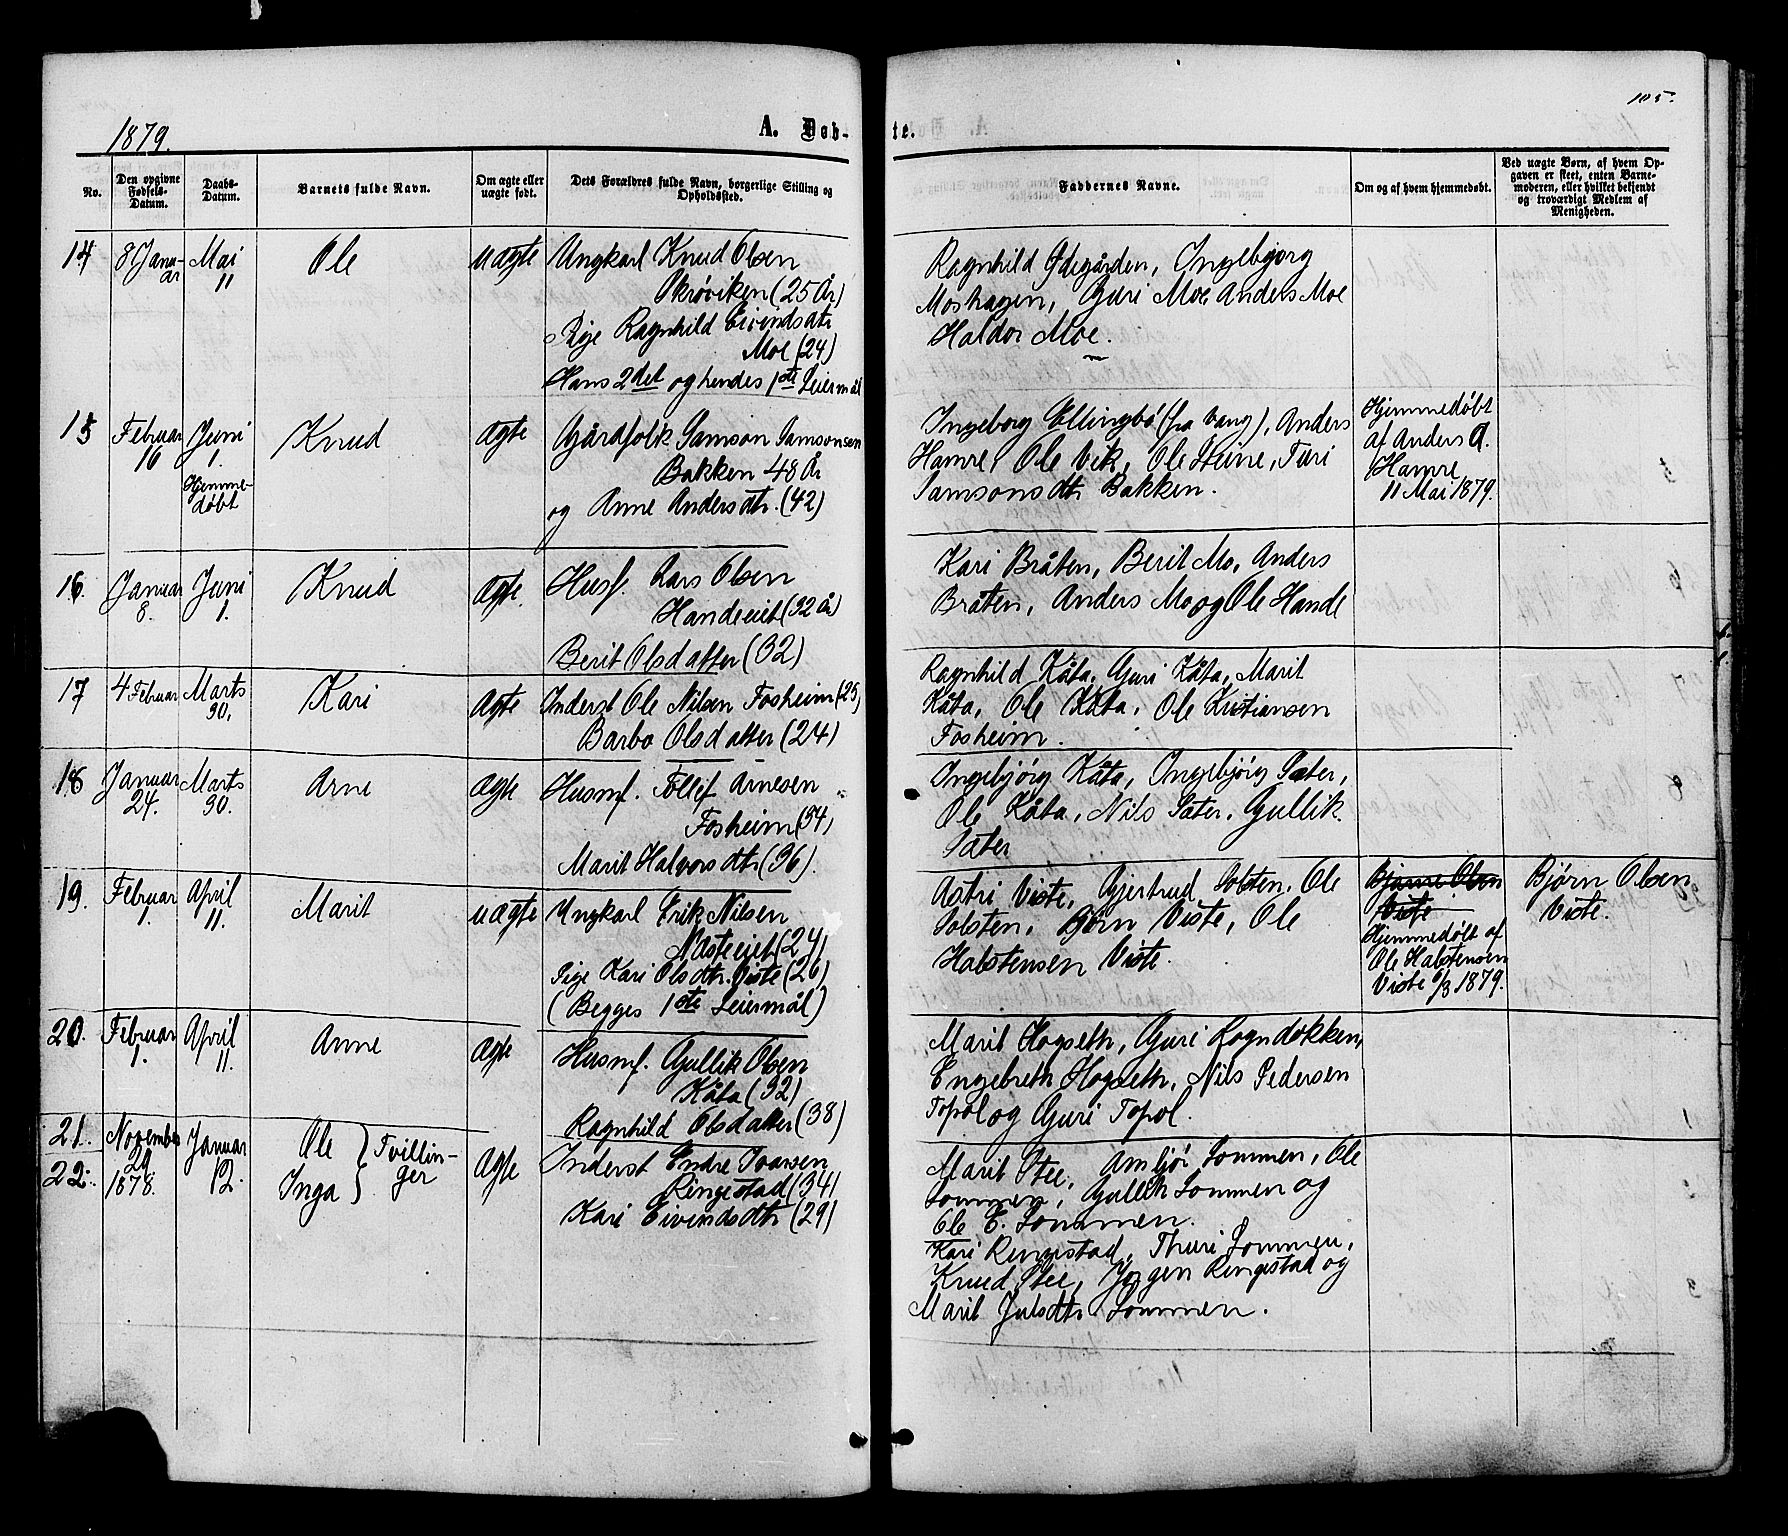 105.
1879.
A. Døb-
te.
No.
Den opgivne Fødsels-Datum.
Daabs-Datum.
Barnets fulde Navn.
Om ægte eller uægte født.
Dets Forældres fulde Navn, borgerlige Stilling og Opholdssted.
Faddernes Navne.
Om og af hvem hjemmedøbt.
Ved uægte Børn, af hvem Opgaven er skeet, enten Barnemoderen, eller hvilket bekjendt og troværdigt Medlem af Menigheden.
14
8 Janu-
ar
Mai
11
Ole
uægte
Ungkarl Knud Olsen
Skrøviken (25 År)
Pige Ragnhild Eivindsdtr
Moe (24)
Hans 2det og hendes 1ste Leiermål
Ragnhild Ødegården, Ingebjørg
Moshagen, Guri Moe Anders Moe
Haldor Moe.
15
Februar
16
Juni
1.
Hjemme-
døbt
Knud
ægte
Gårdfolk Samson Samsonsen
Bakken 48 År
og Anne Andersdtr. (42)
Ingeborg Ellingbø (fra Vang), Anders
Hamre, Ole Vik, Ole Steine, Turi
Samsonsdtr Bakken.
Hjemmedøbt
af Anders A.
Hamre
11 Mai 1879.
16.
Januar
8.
Juni
1.
Knud
ægte.
Husf. Lars Olsen
Handeeiet (32 år)
Berit Olsdatter (32)
Kari Bråten, Berit Mo, Anders
Bråten, Anders Mo og Ole Hande
17
4 Februar
Marts
30.
Kari
ægte
Inderst Ole Nilsen Fosheim (25)
Barbo Olsdatter (24)
Ragnhild Kåta, Guri Kåta, Marit
Kåta, Ole Kåta, Ole Kristiansen
Fosheim.
18
Januar
24.
Marts
30.
Arne
ægte
Husmf. Tollef Arnesen
Fosheim (34)
Marit Halvorsdtr (36).
Ingebjörg Kåta, Ingebjörg Sæter,
Ole Kåta, Nils Sæter, Gullik
Sæter
19.
Februar
1.
April
11.
Marit
uægte
Ungkarl Erik Nilsen
Næsteeiet (24)
Pige Kari Olsdtr. Viste (26)
(Begges 1ste Leiermål)
Astri Viste, Gjertrud Solsten, Ole
Solsten, Bjørn Viste, Ole
Halstensen Viste.
Bjørn Olsen
Viste
Hjemmedøbt af
Ole Halstensen
Viste 6/3 1879.
Bjørn Olsen
Viste.
20.
Februar
1.
April
11.
Anne
ægte
Husmf. Gullik Olsen
Kåta (32)
Ragnhild Olsdatter (38)
Marit Hogseth, Guri Rogndokken,
Engebreth Hogseth, Nils Pedersen
Topol og Guri Topol.
21.
22.
November
29
1878.
Januar
12.
Ole
Inga
Tvillin-
ger
ægte
Inderst Endre Ivarsen
Ringestad (34)
Kari Eivindsdtr (29)
Marit Stee, Ambjør Lommen, Ole
Lommen, Gullik Lommen og
Ole E. Lommen.
Kari Ringestad, Thuri Lommen,
Knud Stee, Jørgen Ringestad og
Marit Julsdtr. Lommen.